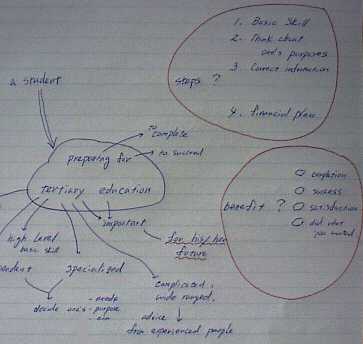 1. Basic Skill
2. Think about
one's purposes
3. Correct information
steps ?
4. financial plan
a student
to complete
to succeed
preparing for
tertiary education
important
for his/her
future
high level
basic skill
specialized
complicated,
wide ranged,
decide one's - needs
- purpose
- aim
advice
from experienced people
benefit ?
completion
success
satisfaction
did what
you wanted